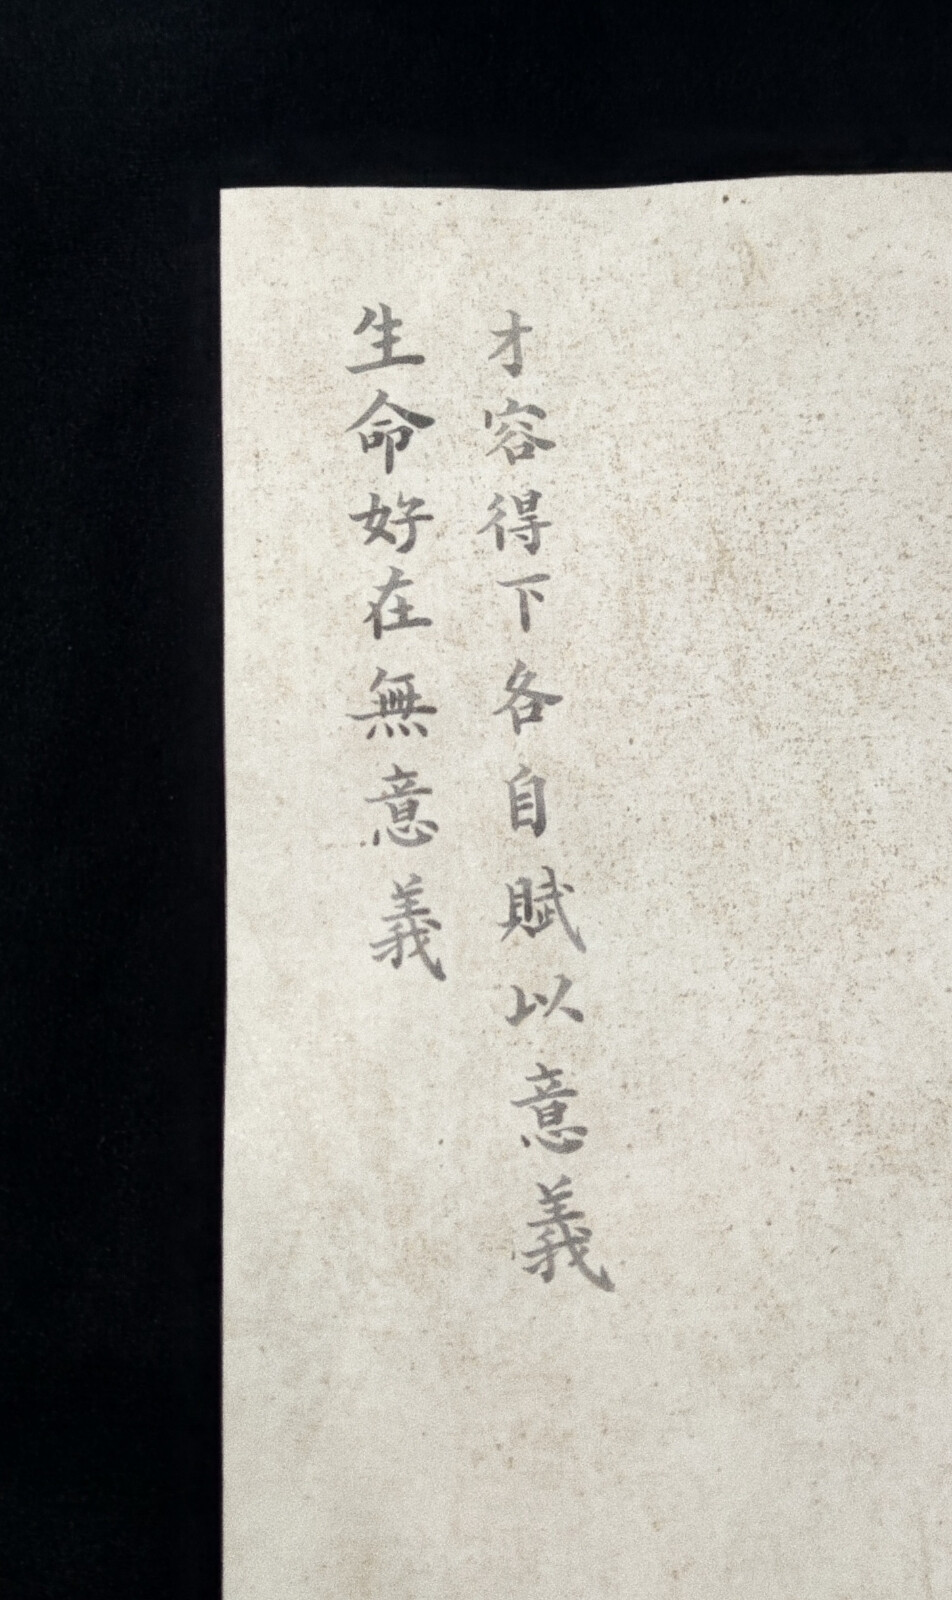 生命好在無意義
才容得下各自賦以意義